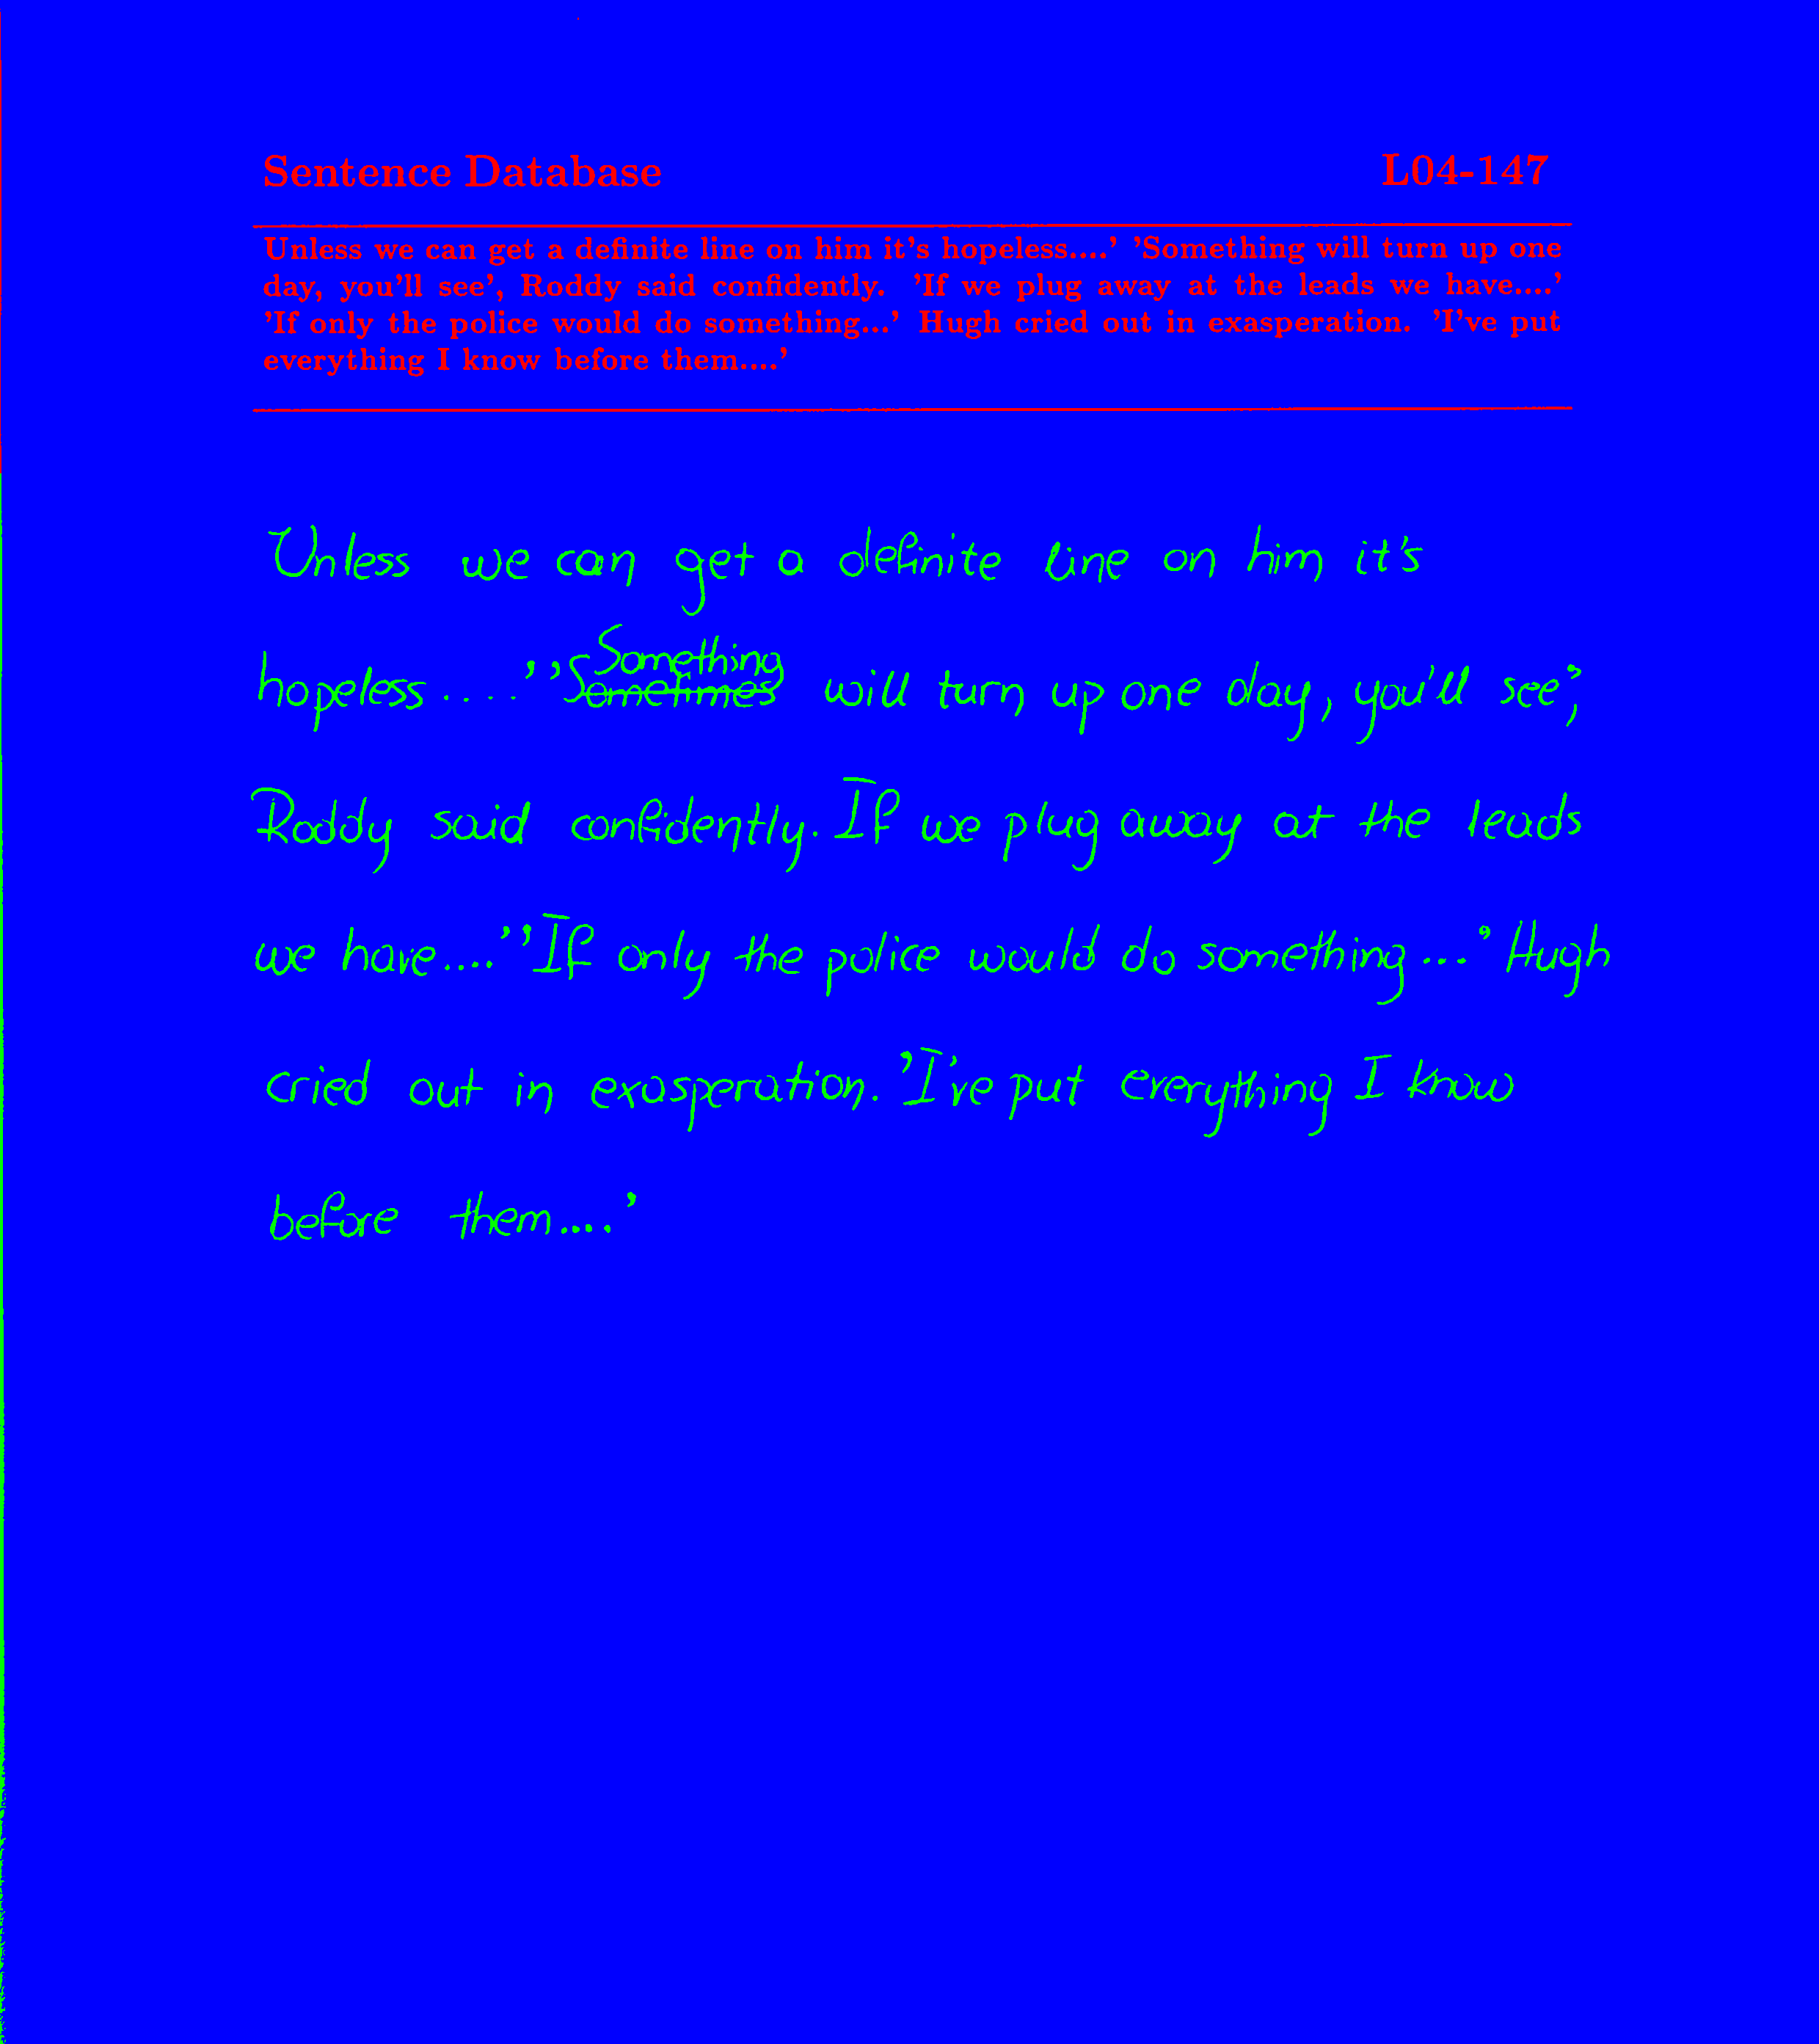 Sentence Database L04-147
Unless we can get a definite line on him it's hopeless....' 'Something will turn up one
day, you'll see', Roddy said confidently. 'If we plug away at the leads we have....'
'If only the police would do something...' Hugh cried out in exasperation. 'I've put
everything I know before them....'
Unless we can get a definite line on him it's
Something
hopeless....' 'Sometimes will turn up one day, you'll see',
Roddy said confidently. If we plug away at the leads
we have....' 'If only the police would do something...' Hugh
cried out in exasperation. 'I've put everything I know
before them....'